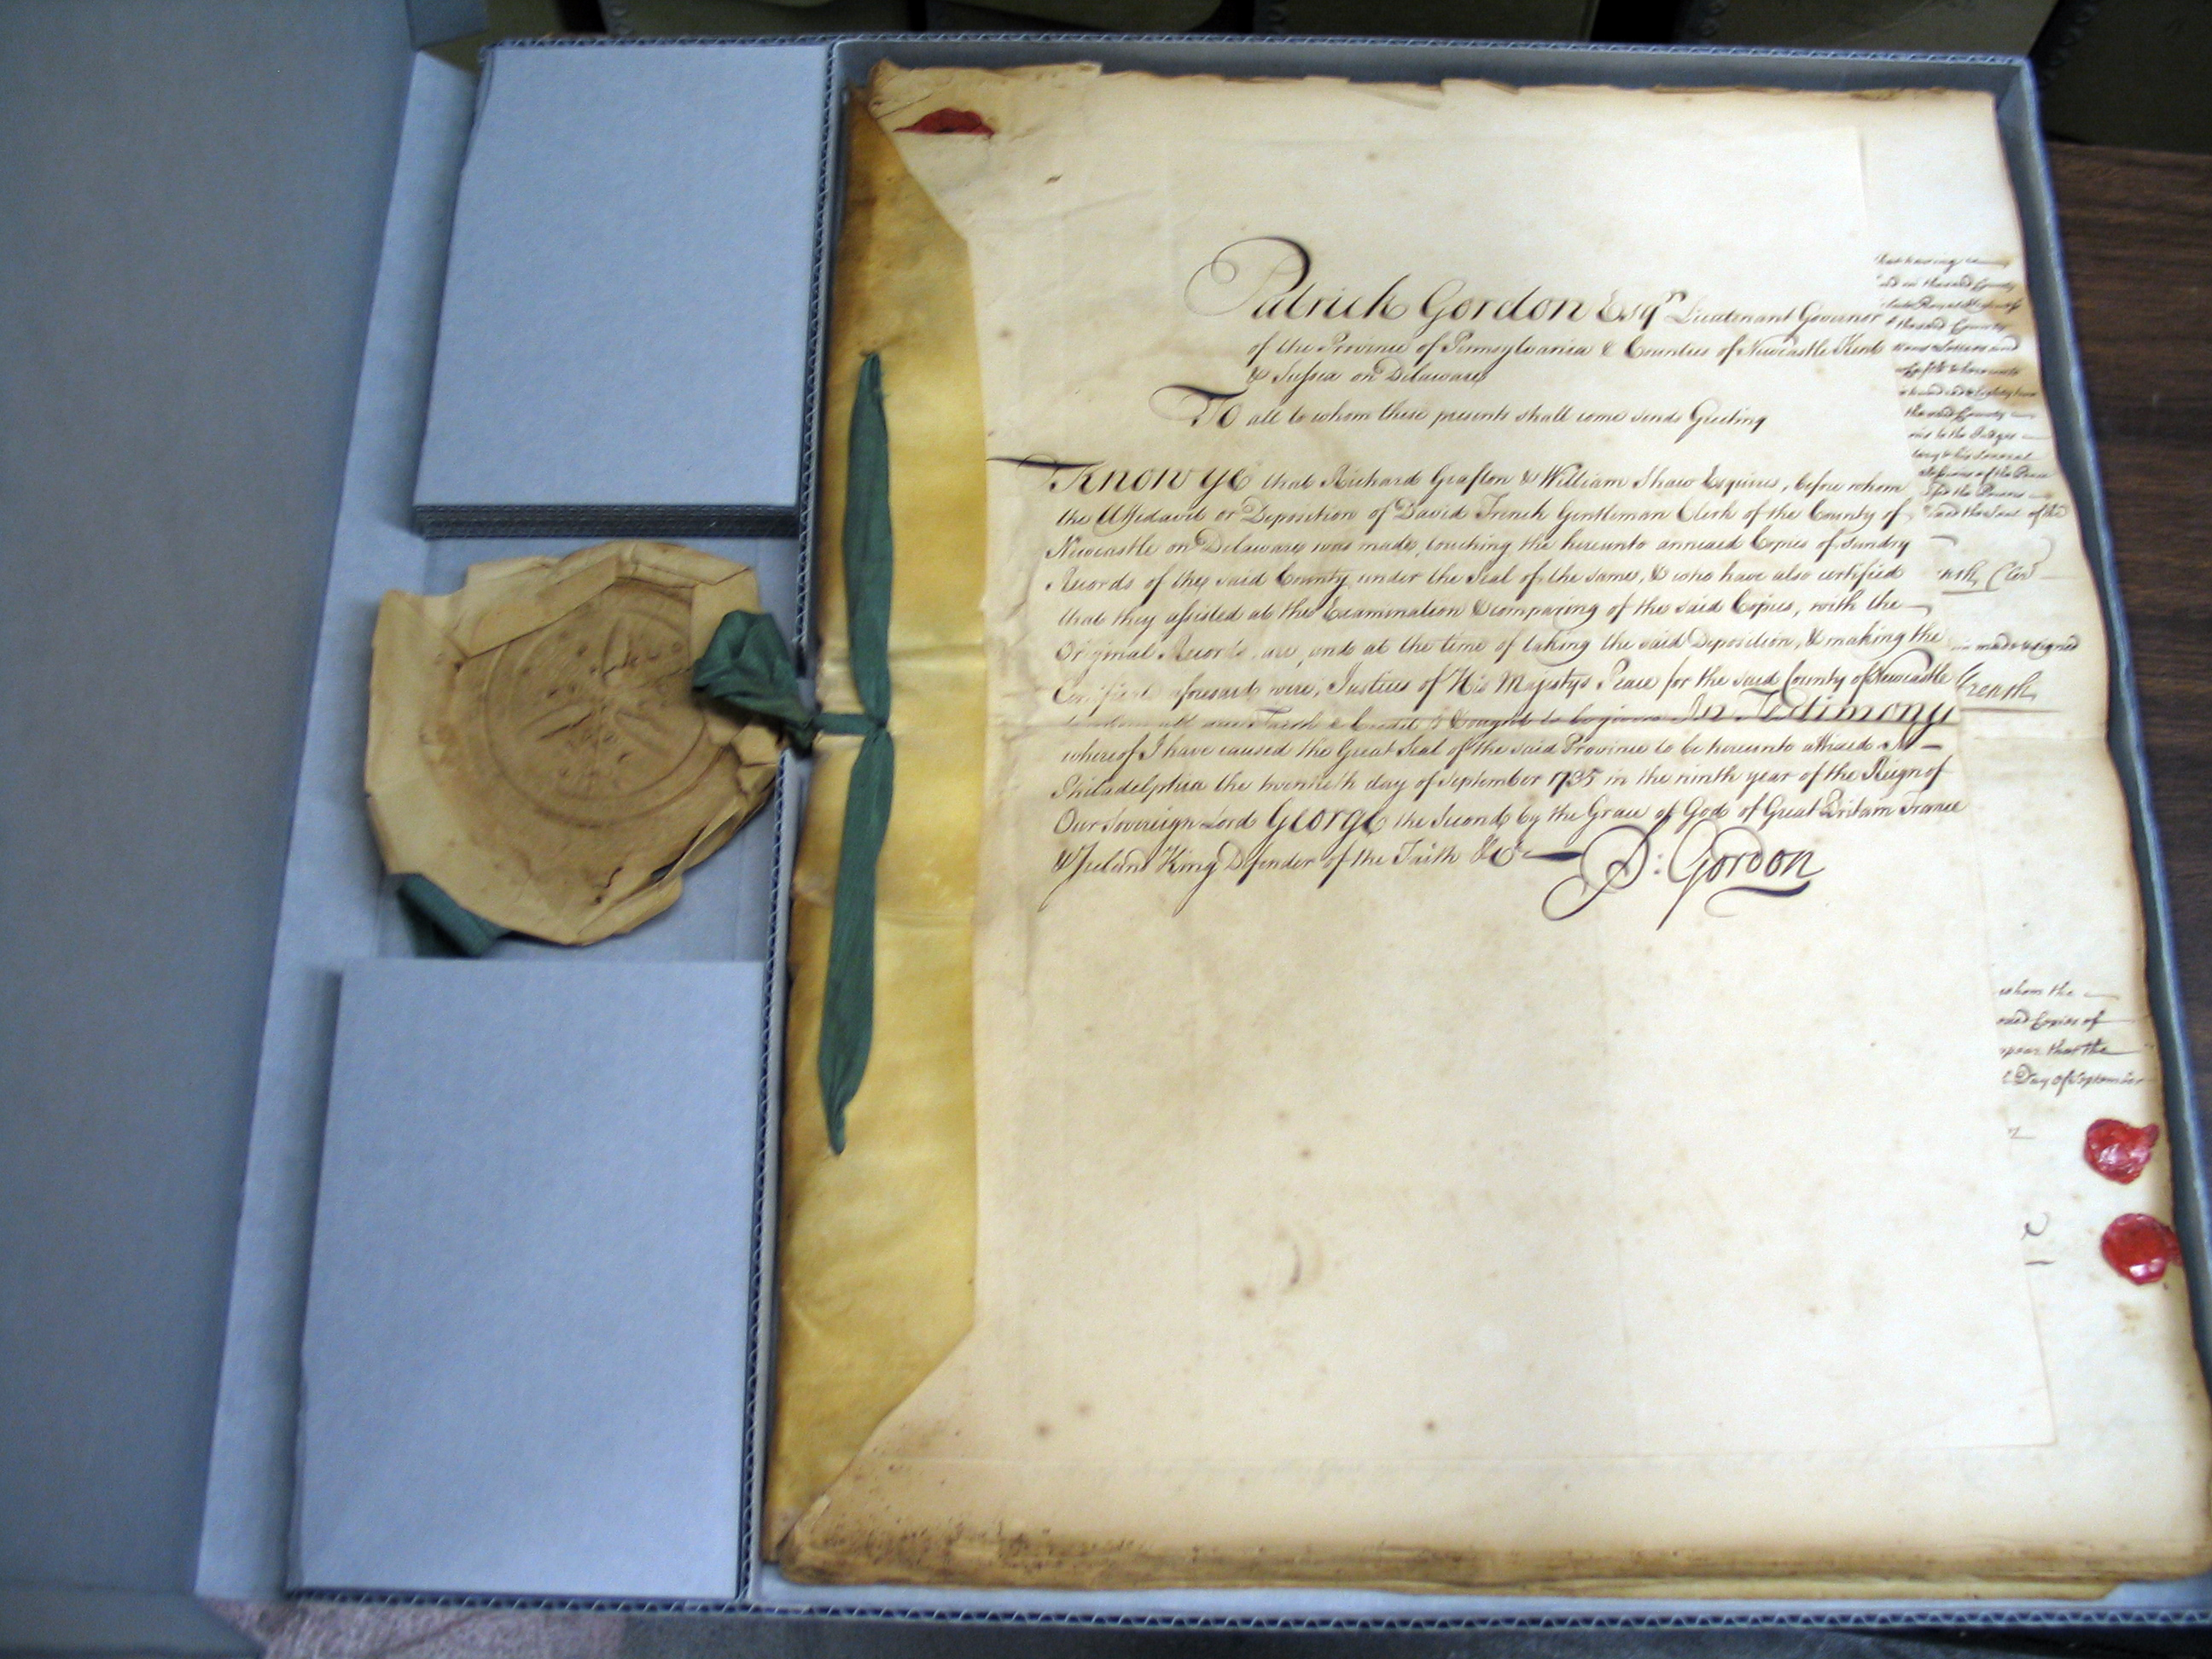 Patrick Gordon Esqr. Lieutenant Governor
of the Province of Pennsylvania & Counties of Newcastle Kent
& Sussex on Delaware
To all to whom these presents shall come sends Greeting
Know ye that Richard Grafton & William Shaw Esquires, before whom
the Affidavit or Deposition of David French Gentleman Clerk of the County of
Newcastle on Delaware was made, touching the hereunto annexed Copies of sundry
Records of the said County under the Seal of the same, & who have also certified
that they assisted at the Examination & comparing of the said Copies, with the
Original Records, are, and at the time of taking the said Deposition, & making the
aforesaid were, Justices of His Majestys Peace for the said County of Newcastle
Faith & Credit is & ought to be given In Testimony
whereof I have caused the Great Seal of the said Province to be hereunto affixed At
Philadelphia the twentieth day of September 1735 in the ninth year of the Reign of
Our Sovereign Lord George the Second by the Grace of God of Great Britain France
& Ireland King Defender of the Faith &c
P: Gordon
and in the said County
the said County
the said County
to the Judges
of the Peace
and the Seal of the
made & signed
French
whom the
Copies of
that the
Day of September